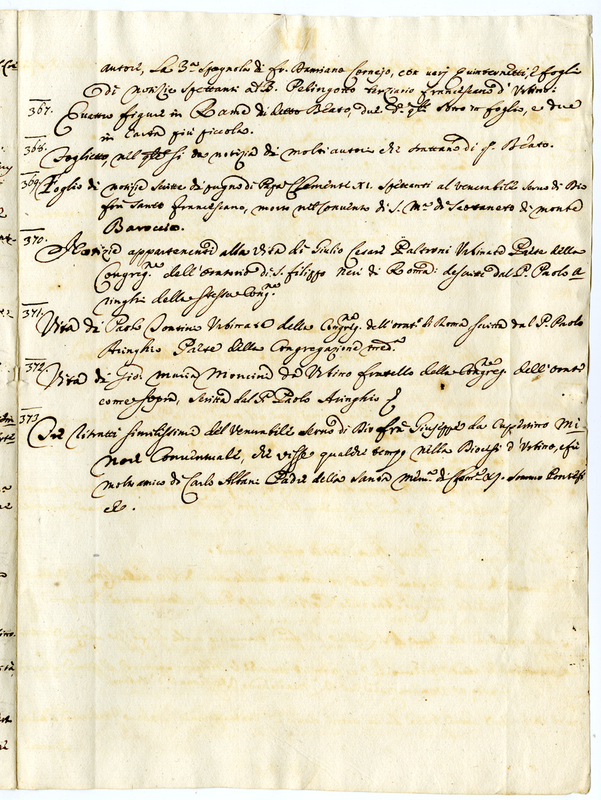 autori, La 3.ª Spagnola di fr. Damiano Cornejo, con varj quinternetti, e fogli
di notizie spettanti al B. Pelingotto terziario francescano d'Urbino.
367. Quattro figure in Rame di detto Beato, due sono in foglio, e due
in carta più piccola.
368. Foglietto, nel si dà notizia di molti autori che trattano di Beato.
369. Foglio di notizie scritte di pugno di Papa Clemente XI. spettanti al venerabile Servo di Dio
fra Francescano, morto nel convento di S. M.ª di Monte
Baroccio.
370. Notizie appartenenti alla vita di Giulio Cesare Paltroni Urbinate Padre della
Congreg.ne dell'oratorio di S. Filippo Neri di Roma: descritte dal P. Paolo A=
ringhi della stessa Cong.ne
371. Vita di Paolo Urbinate della Congreg. dell'orat.º di Roma scritta dal P. Paolo
Aringhio Padre della Congregazione med.ª
372. Vita di Gio: Maria da Urbino fratello della Congreg.ne dell'orat.º
come sopra, scritta dal P. Paolo Aringhio
373. Tre Ritratti similissimi del Venerabile Servo di Dio fra Giuseppe da Cupertino Mi=
nore Conventuale, che visse qualche tempo nella Diocesi d'Urbino, e fù
molto amico di Carlo Albani Padre della Santa Mem.ª di Clem.te XI. Sommo Pontefi
ce.